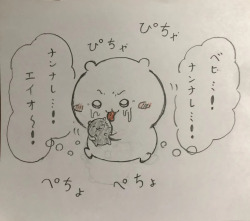 ぴちゃ
ぴちゃ
ベビ…!
ナンナレ…!
ナンナレ…!
エイオ〜!
ぺちょ
ぺちょ